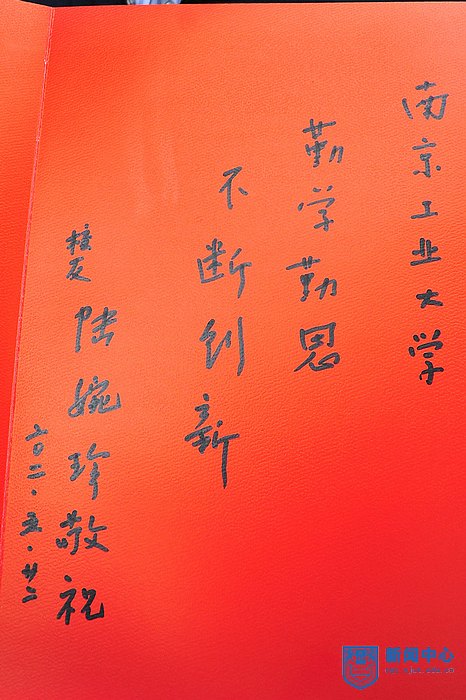 南京工业大学
勤学勤思
不断创新
校友 陆婉珍敬祝
二〇一二.五.廿二
新闻中心